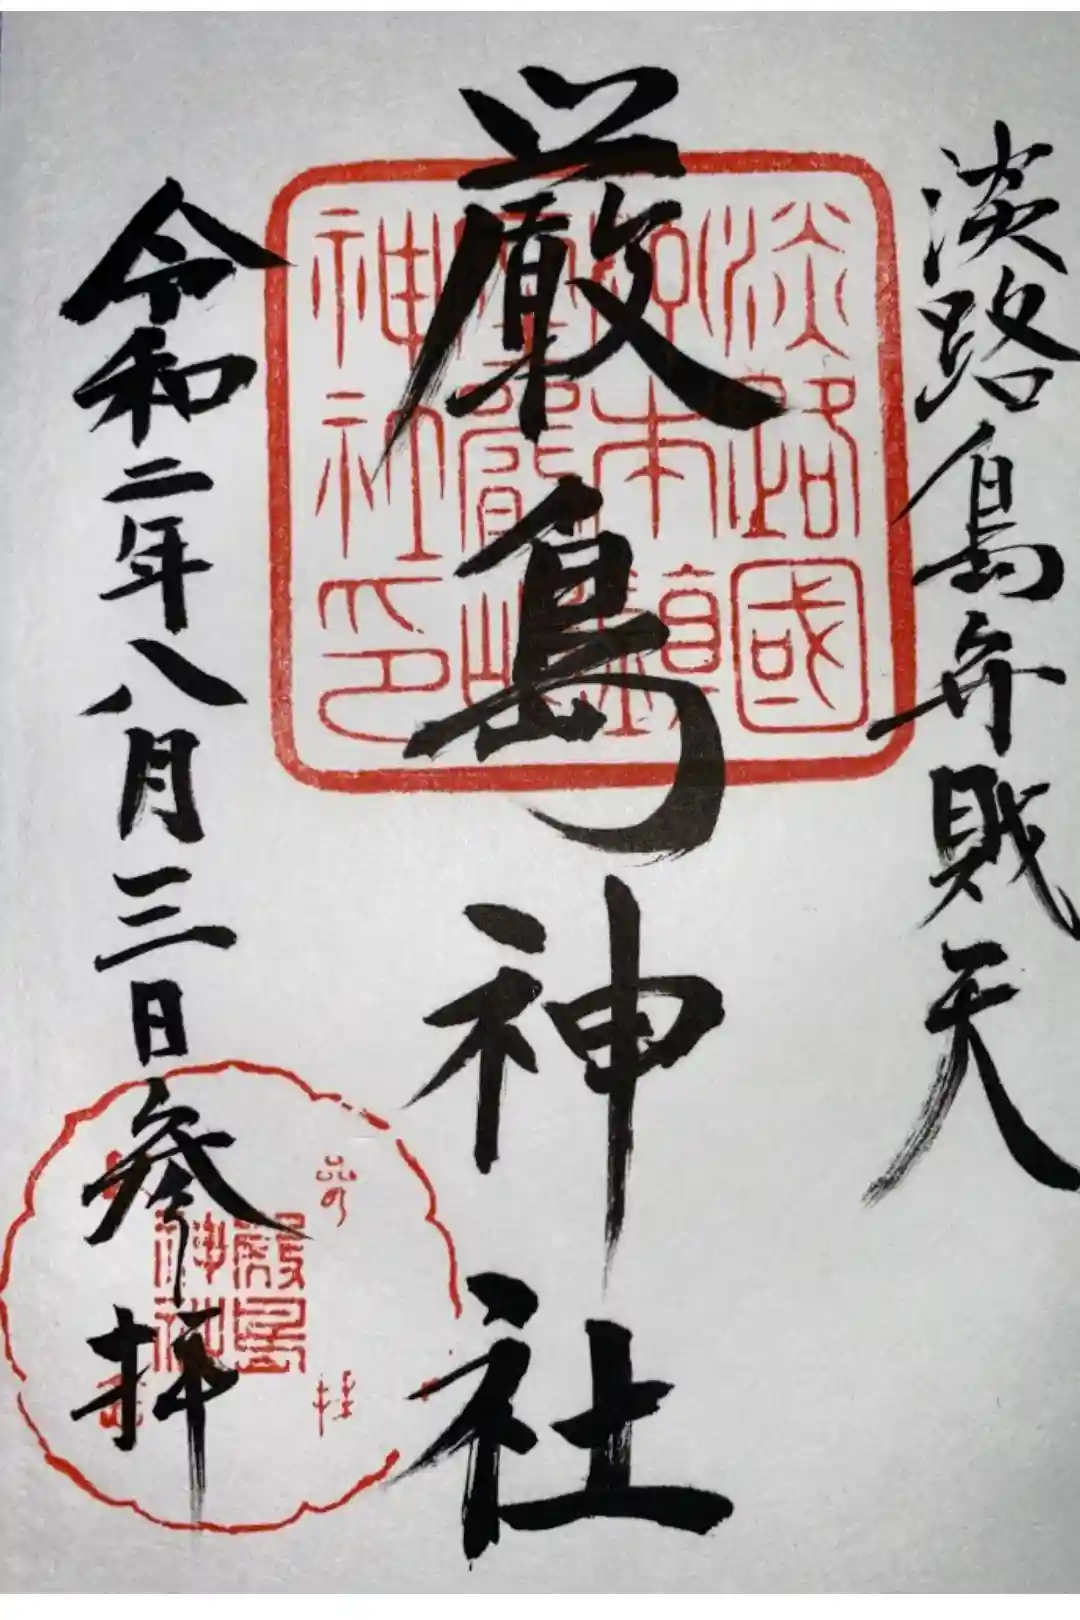 淡路島弁財天
厳島神社
令和二年八月三日参拝
淡路國
神社印
厳島
神社